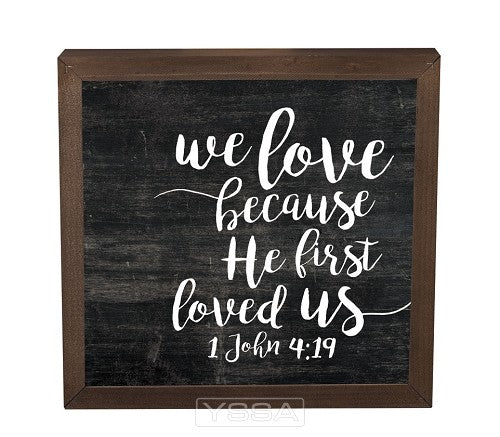 we love
because
He first
loved us
1 John 4:19
YSSA